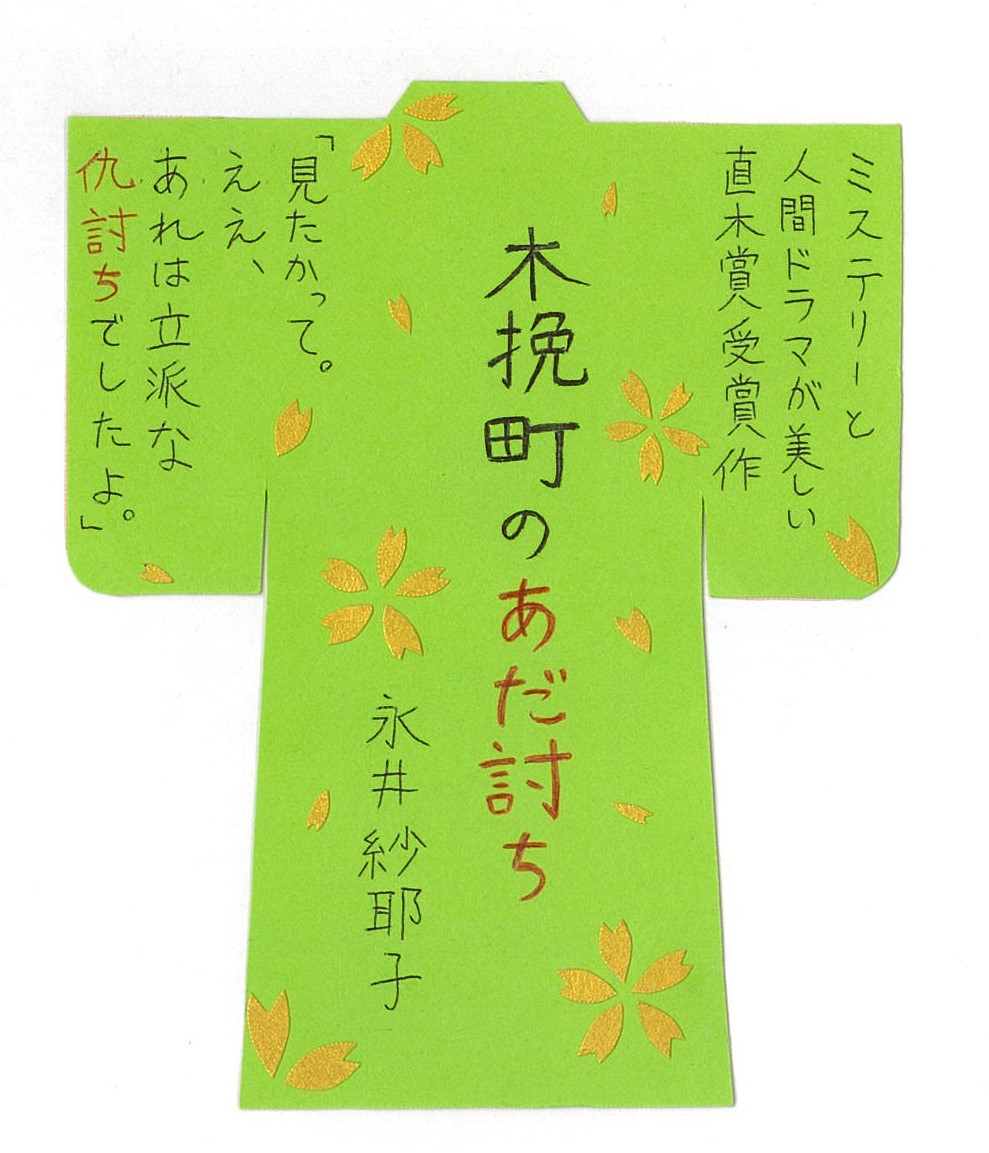 ミステリーと
人間ドラマが美しい
直木賞受賞作
木挽町のあだ討ち
永井紗耶子
「見たかって。
ええ、
あれは立派な
仇討ちでしたよ。」